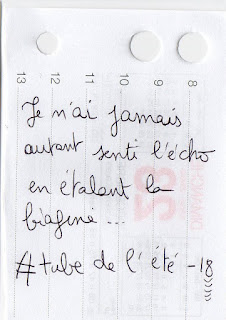 13 12 11 10 9 8
Je n'ai jamais
autant senti l'écho
en étalant la
biafine...
# tube de l'été -18
28
DIMANCHE